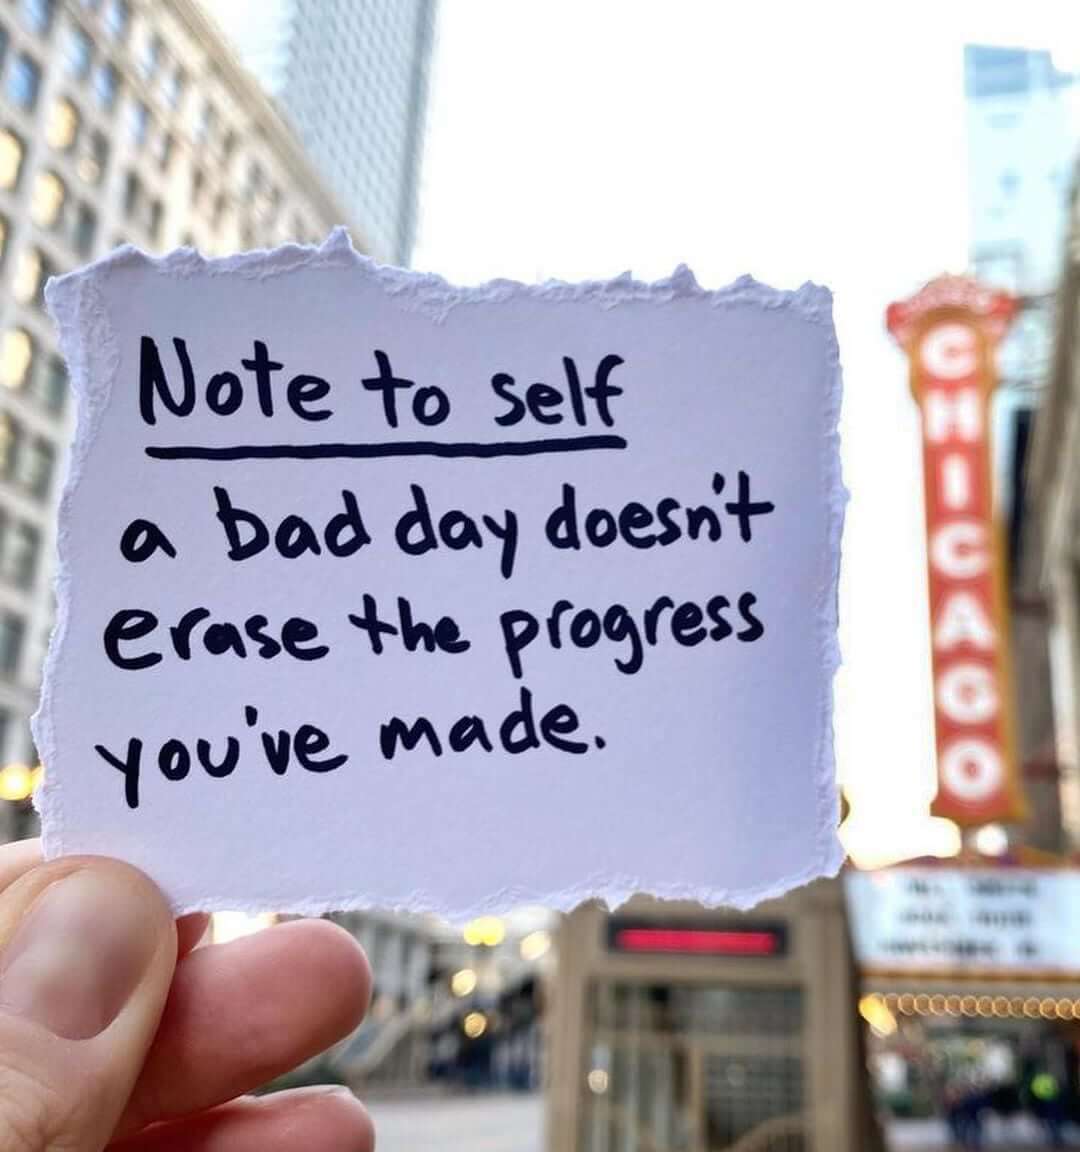 Note to self
a bad day doesn't
erase the progress
you've made.
CHICAGO